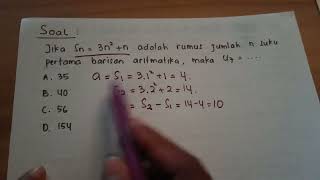 Soal :
Jika Sn = 3n² + n adalah rumus jumlah n suku
pertama barisan aritmatika, maka U7 = ....
A. 35
a = S1 = 3.1² + 1 = 4.
B. 40
S2 = 3.2² + 2 = 14.
C. 56
= S2 - S1 = 14 - 4 = 10
D. 154